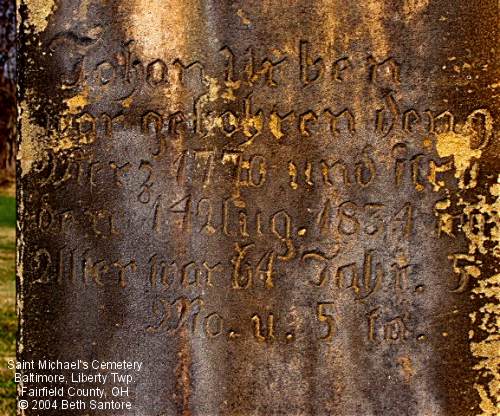 Johan Urben
war gebohren den 9
Merz 1770 und
den 14 Aug. 1834
Alter war 64 Jahr. 5
Mo. u. 5 ta.
Saint Michael's Cemetery
Baltimore, Liberty Twp.
Fairfield County, OH
© 2004 Beth Santore